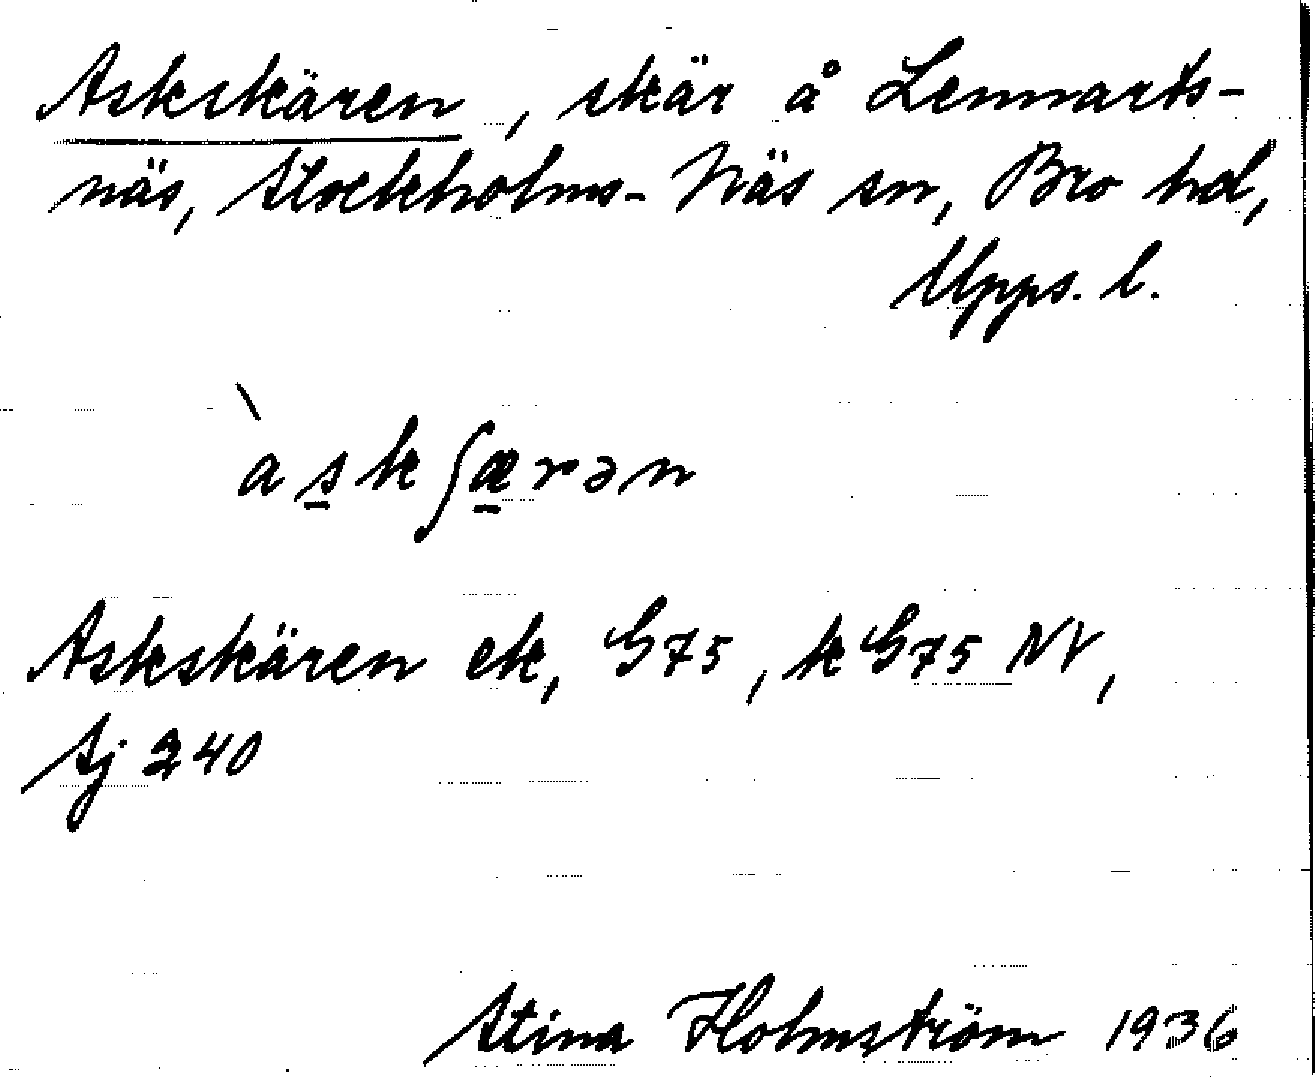 Askskären, skär å Lennarts-
näs, Stockholms-Näs sn, Bro hd,
Upps. l.
̀as̠kʃæ̠rən
Askskären ek, G75, k G75 NV,
Sj 240
Stina Holmström 1936